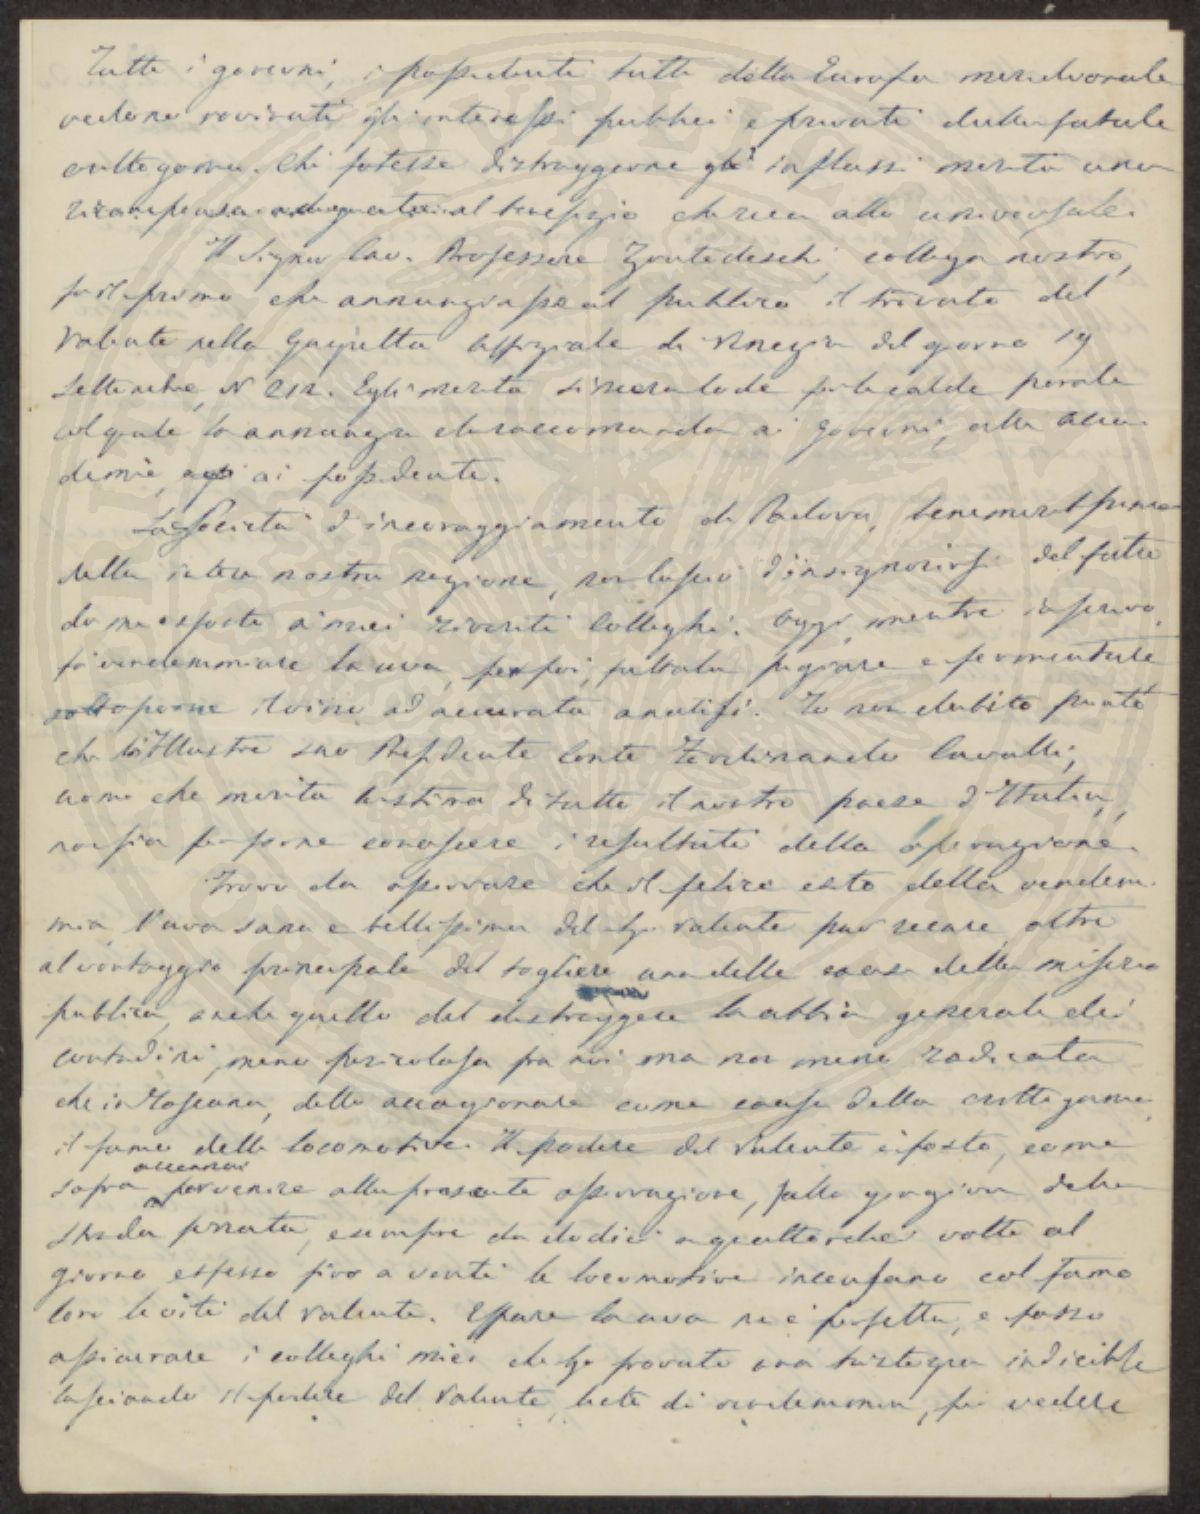 Tutti i governi, i possidenti tutti della Europa meridionale
vedono rovinati gli interessi pubblici e privati dalla fatale
crittogama. Chi potesse distruggerne gli influssi merita una
ricompensa adeguata al benefizio che reca alla universale.
Il Signor Cav. Professore Zantedeschi, collega nostro,
fu il primo che annunziasse al pubblico il trovato del
Valente nella Gazzetta Uffiziale di Venezia del giorno 19
Settembre, N 212. Egli merita sincera lode per le calde parole
col quale lo annunzia e lo raccomanda ai governi, alle acca-
demie, ai possidenti.
La Società d'incoraggiamento di Padova, benemerita
della intera nostra regione, non lasciò d'insignorirsi del fatto
da me esposto a' miei riveriti Colleghi. Oggi, mentre io scrivo,
fa vendemmiare la uva, per poi, pigiare e fermentare
sottoporne il vino ad accurata analisi. Io non dubito punto
che lo Illustre suo Presidente Conte Ferdinando Cavalli,
uomo che merita la stima di tutto il nostro paese d'Italia,
non sia per farne conoscere i resultati della operazione.
Trovo da osservare che il felice esito della vendem-
mia, l'uva sana e bellissima del Sr Valente può recare oltre
al vantaggio principale del togliere una delle cause della miseria
pubblica, anche quello del distruggere la ubbia generale dei
contadini, meno pericolosa fra noi ma non meno radicata
che in Toscana, dello accagionare come causa della crittogama
il fumo delle locomotive. Il podere del Valente è posto, come
sopra accennai
pervenire alla presente osservazione, sulla
strada ferrata, e sempre da dodici a quattordici volte al
giorno e spesso fino a venti le locomotive incensano col fumo
loro le viti del Valente. Eppure la uva ne è perfetta, e posso
assicurare i colleghi miei che ho provato una tristezza indicibile
lasciando il podere del Valente, lieto di vendemmia, per vedere